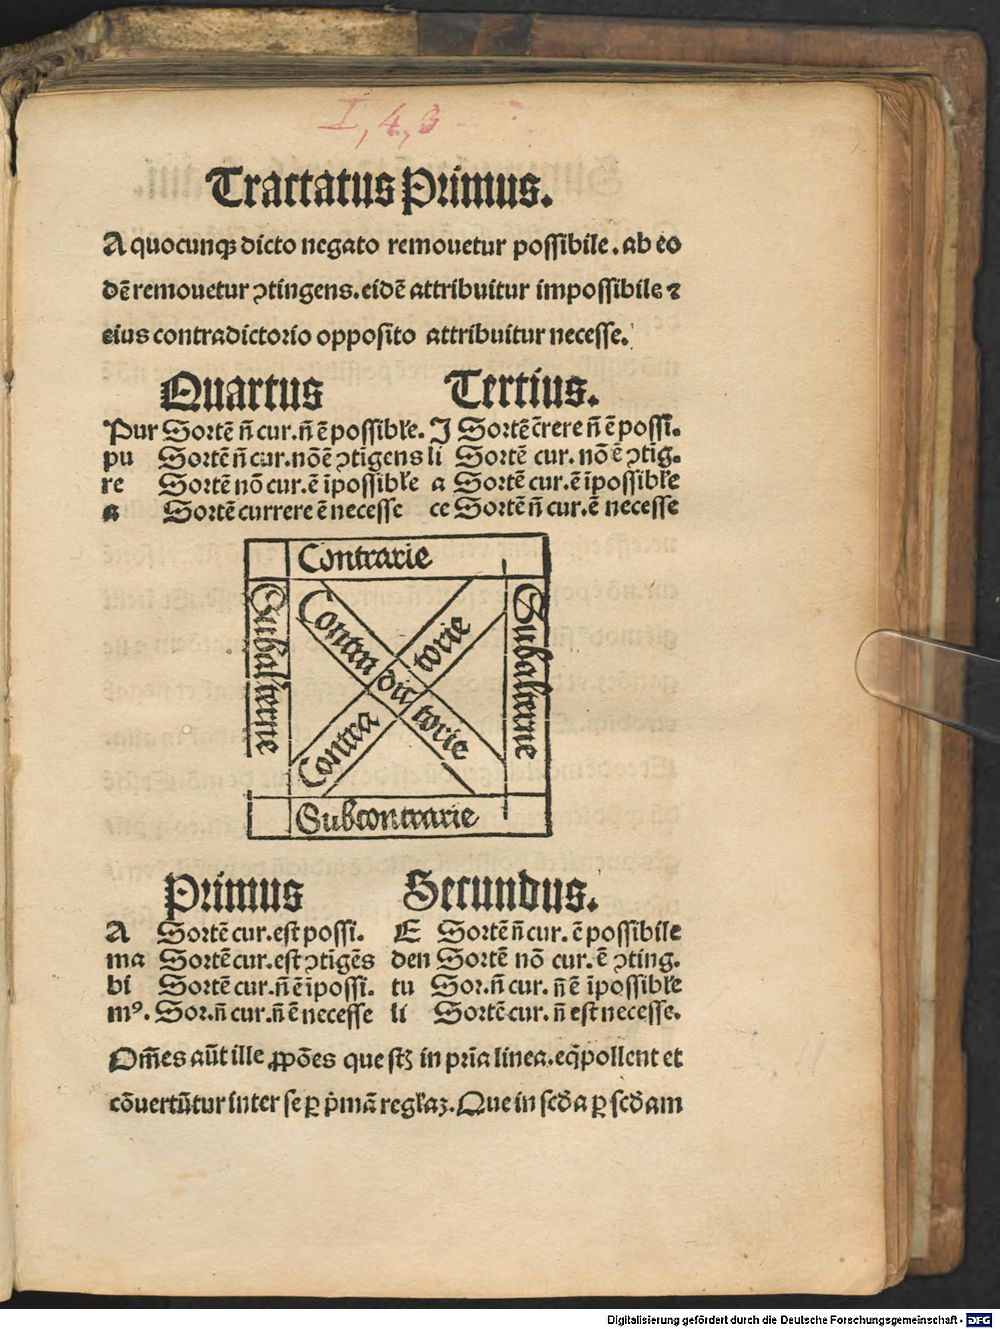 I, 4, 3
Tractatus Primus.
A quocunqꝫ dicto negato remouetur possibile. ab eo
dē remouetur ꝯtingens. eidē attribuitur impossibile ⁊
eius contradictorio opposito attribuitur necesse.
Quartus Tertius.
Pur Sortē n̄ cur. n̄ ē possible. I Sortē c̄rere n̄ ē possi.
pu Sortē n̄ cur. nō ē ꝯtigens li Sortē cur. nō ē ꝯtig.
re Sortē nō cur. ē īpossible a Sortē cur. ē īpossible
a Sortē currere ē necesse ce Sortē n̄ cur. ē necesse
Contrarie
Subalterne
Contra dic torie
Contra torie
Subalterne
Subcontrarie
Primus Secundus.
A Sortē cur. est possi. E Sortē n̄ cur. ē possibile
ma Sortē cur. est ꝯtigēs den Sortē nō cur. ē ꝯting.
bi Sortē cur. n̄ ē īpossi. tu Sor. n̄ cur. n̄ ē īpossible
mꝰ. Sor. n̄ cur. n̄ ē necesse li Sortē cur. n̄ est necesse.
Om̄es aūt ille ꝓpōes que st̄ꝫ in pria linea. eq̄pollent et
cōuertūtur inter se ꝑ p̄mā regl'aꝫ. Que in scd̄a ꝑ scd̄am
Digitalisierung gefördert durch die Deutsche Forschungsgemeinschaft - DFG